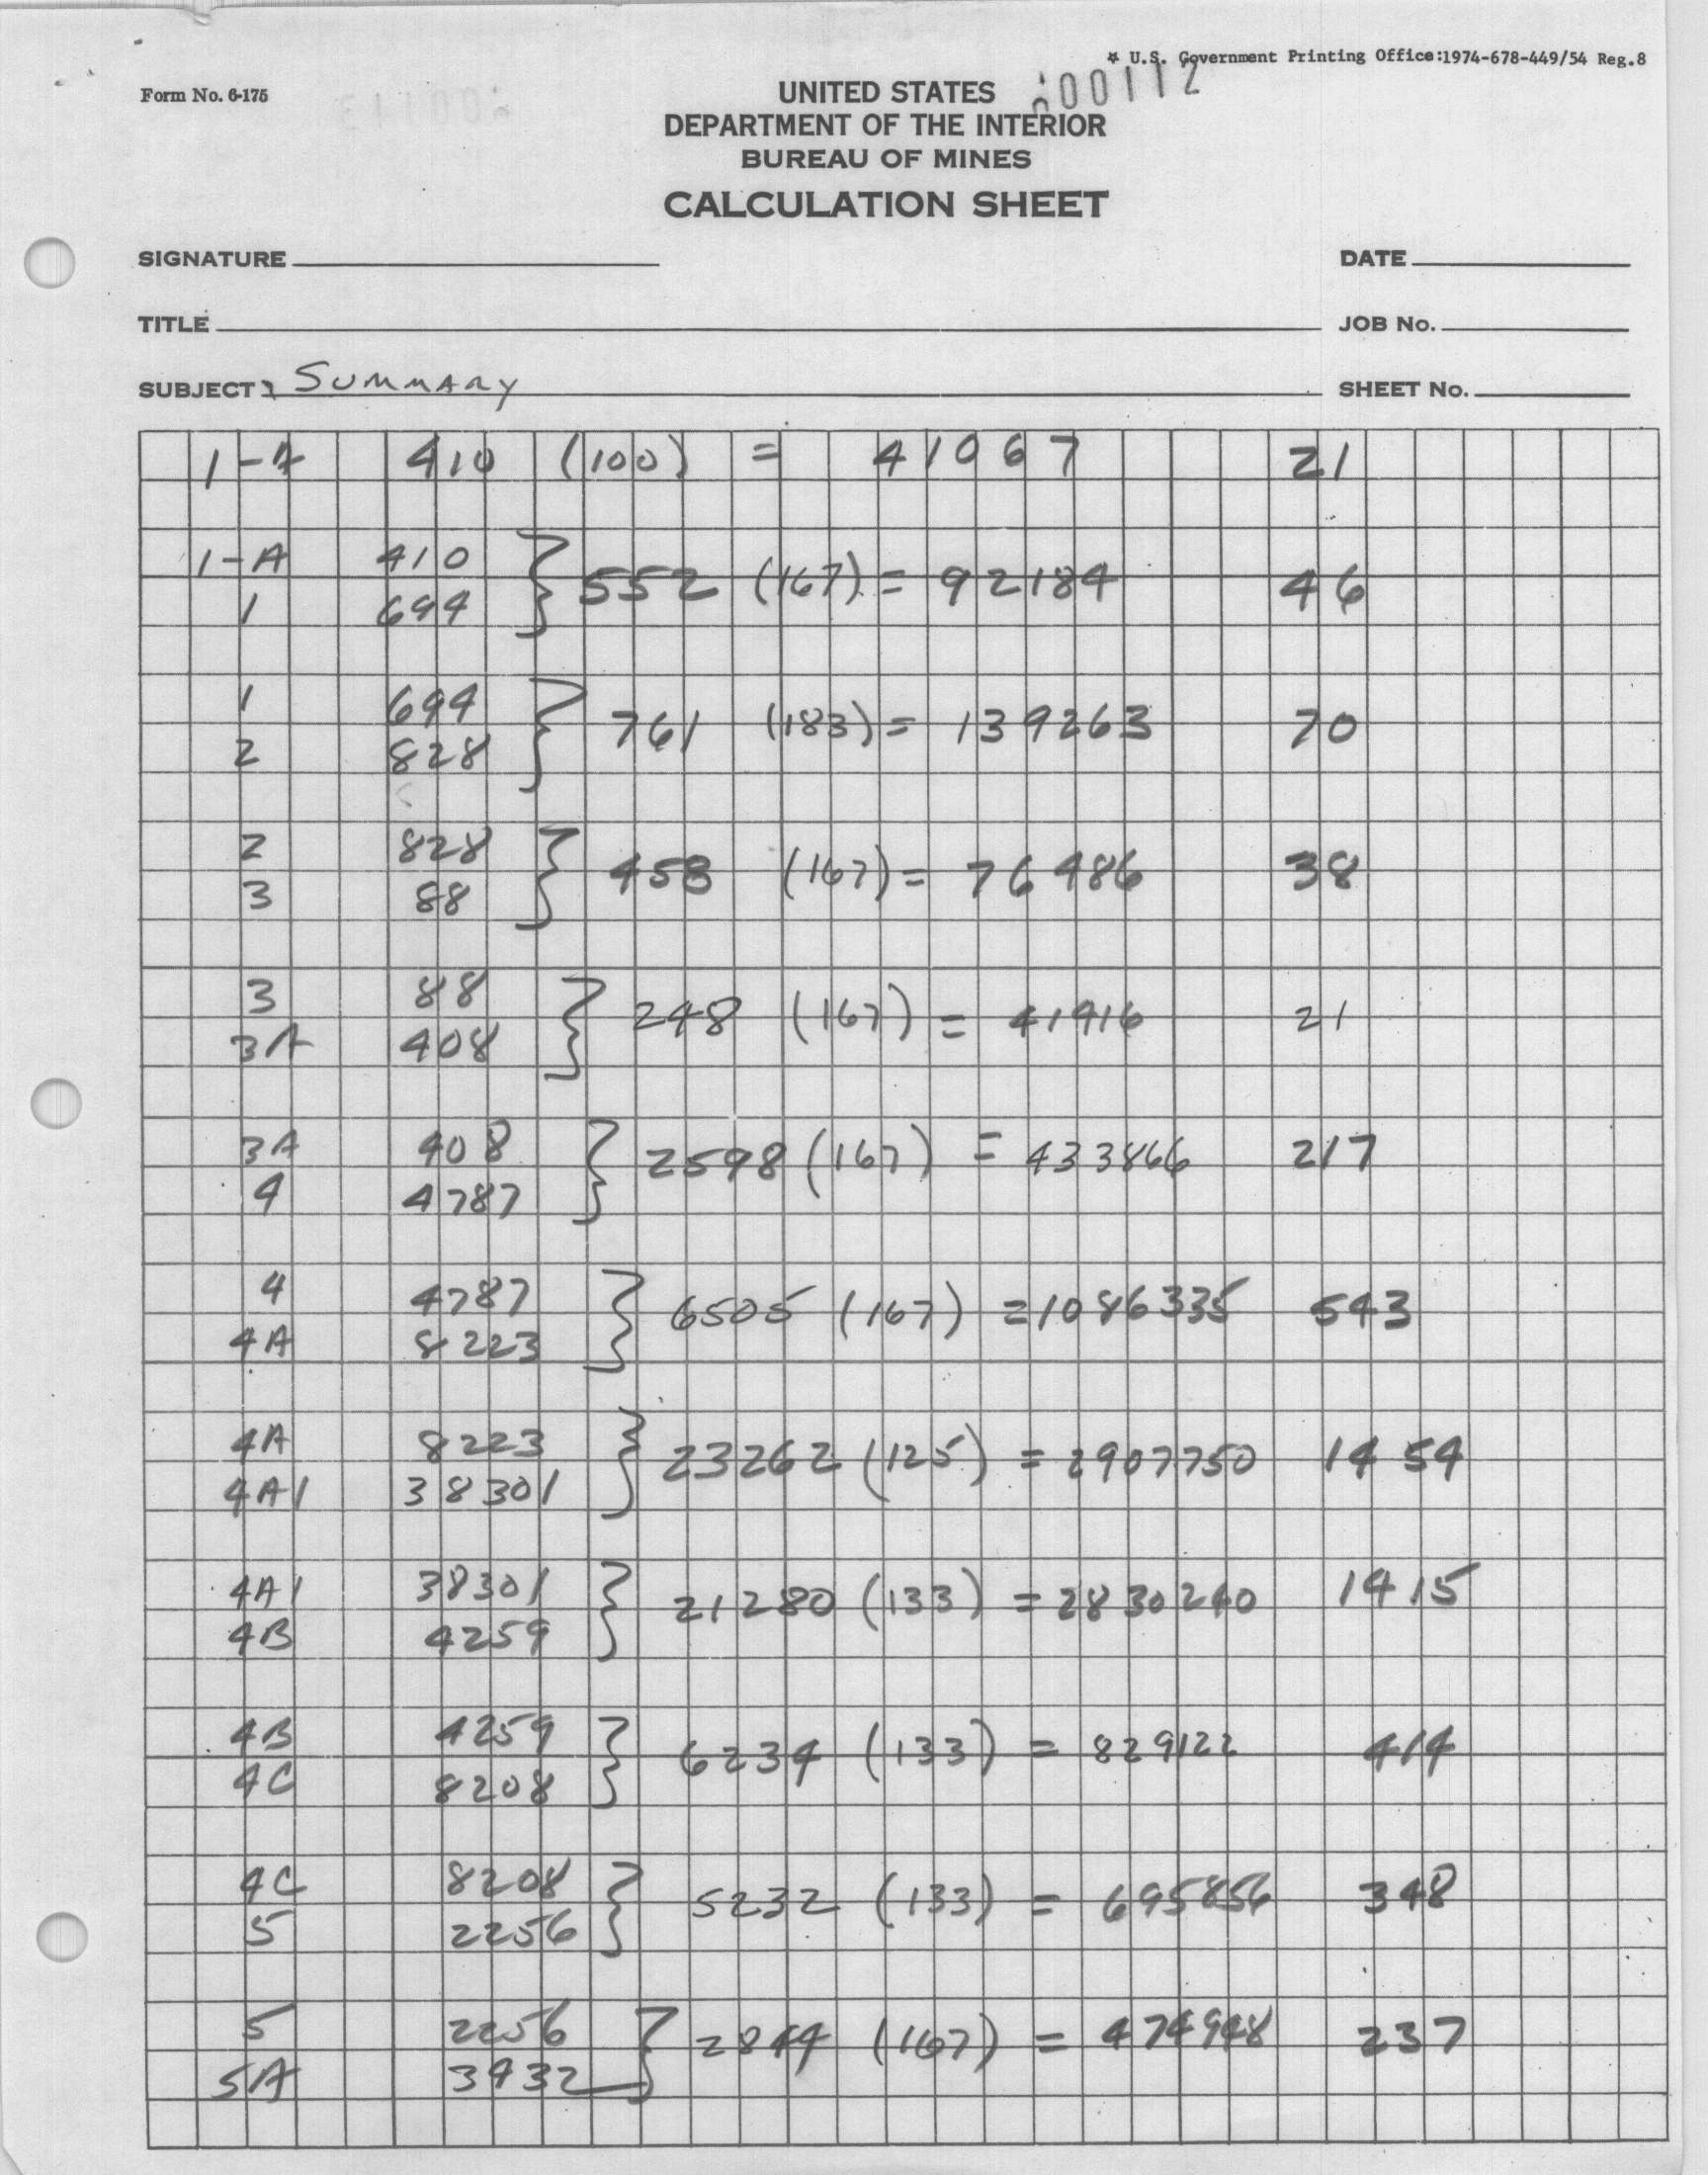 * U.S. Government Printing Office:1974-678-449/54 Reg.8
Form No. 6-175
000112
UNITED STATES
DEPARTMENT OF THE INTERIOR
BUREAU OF MINES
CALCULATION SHEET
SIGNATURE DATE
TITLE JOB No.
SUBJECT Summary SHEET No.
1-A 410 (100) = 41067 21
1-A 410
552 (167) = 92184 46
1 694
1 694
761 (183) = 139263 70
2 828
2 828
458 (167) = 76486 38
3 88
3 88
248 (167) = 41416 21
3A 408
3A 408
2598 (167) = 433866 217
4 4787
4 4787
6505 (167) = 1086335 543
4A 8223
4A 8223
23262 (125) = 2907750 1454
4A1 38301
4A1 38301
21280 (133) = 2830240 1415
4B 4259
4B 4259
6234 (133) = 829122 414
4C 8208
4C 8208
5232 (133) = 695856 348
5 2256
5 2256
2844 (167) = 474948 237
5A 3432